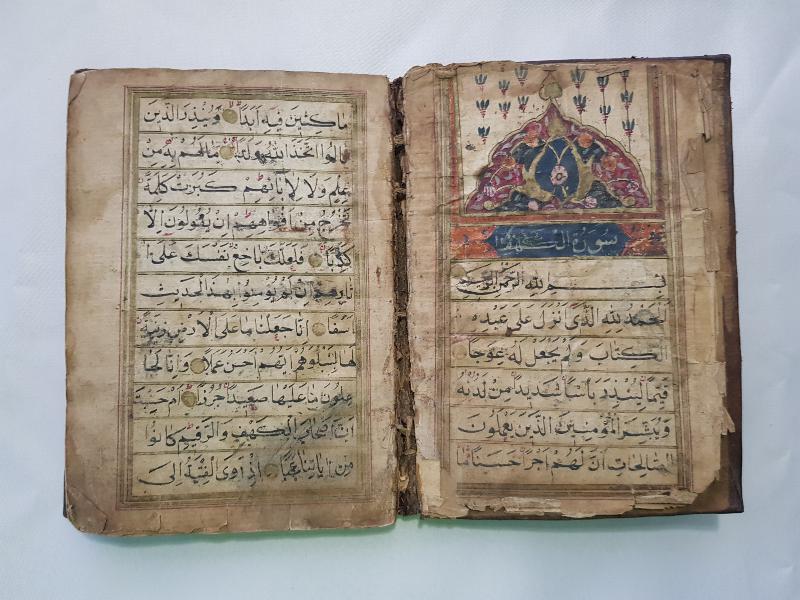 سورة الكهف
بسم الله الرحمن الرحيم
الحمد لله الذى انزل على عبده
الكتاب ولم يجعل له عوجا
قيما لينذر باسا شديدا من لدنه
ويبشر المؤمنين الذين يعملون
الصالحات ان لهم اجرا حسنا
ماكثين فيه ابدا وينذر الذين
قالوا اتخذ الله ولدا مالهم به من
علم ولا لابائهم كبرت كلمة
تخرج من افواههم ان يقولون الا
كذبا فلعلك باخع نفسك على
اثارهم ان لم يؤمنوا بهذا الحديث
اسفا انا جعلنا ما على الارض زينة
لها لنبلوهم ايهم احسن عملا وانا لجا
علون ما عليها صعيدا جرزا ام حسبت
ان اصحاب الكهف والرقيم كانوا
من اياتنا عجبا اذ اوى الفتية الى